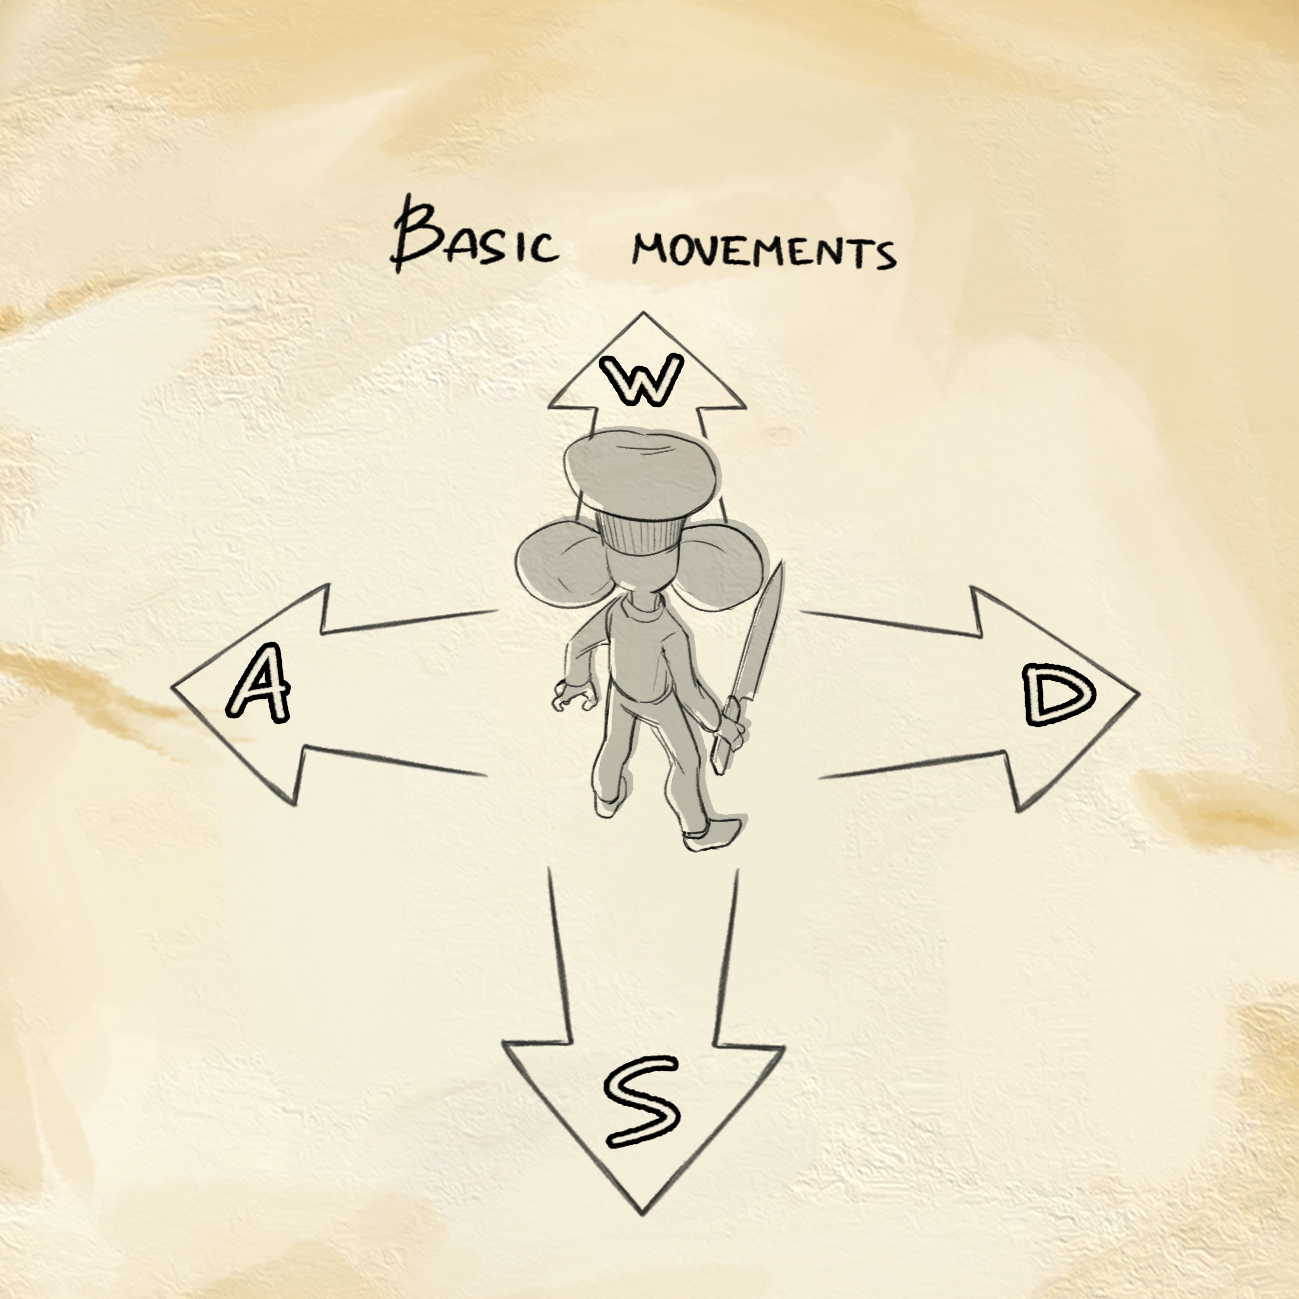 Basic movements
W
A
D
S